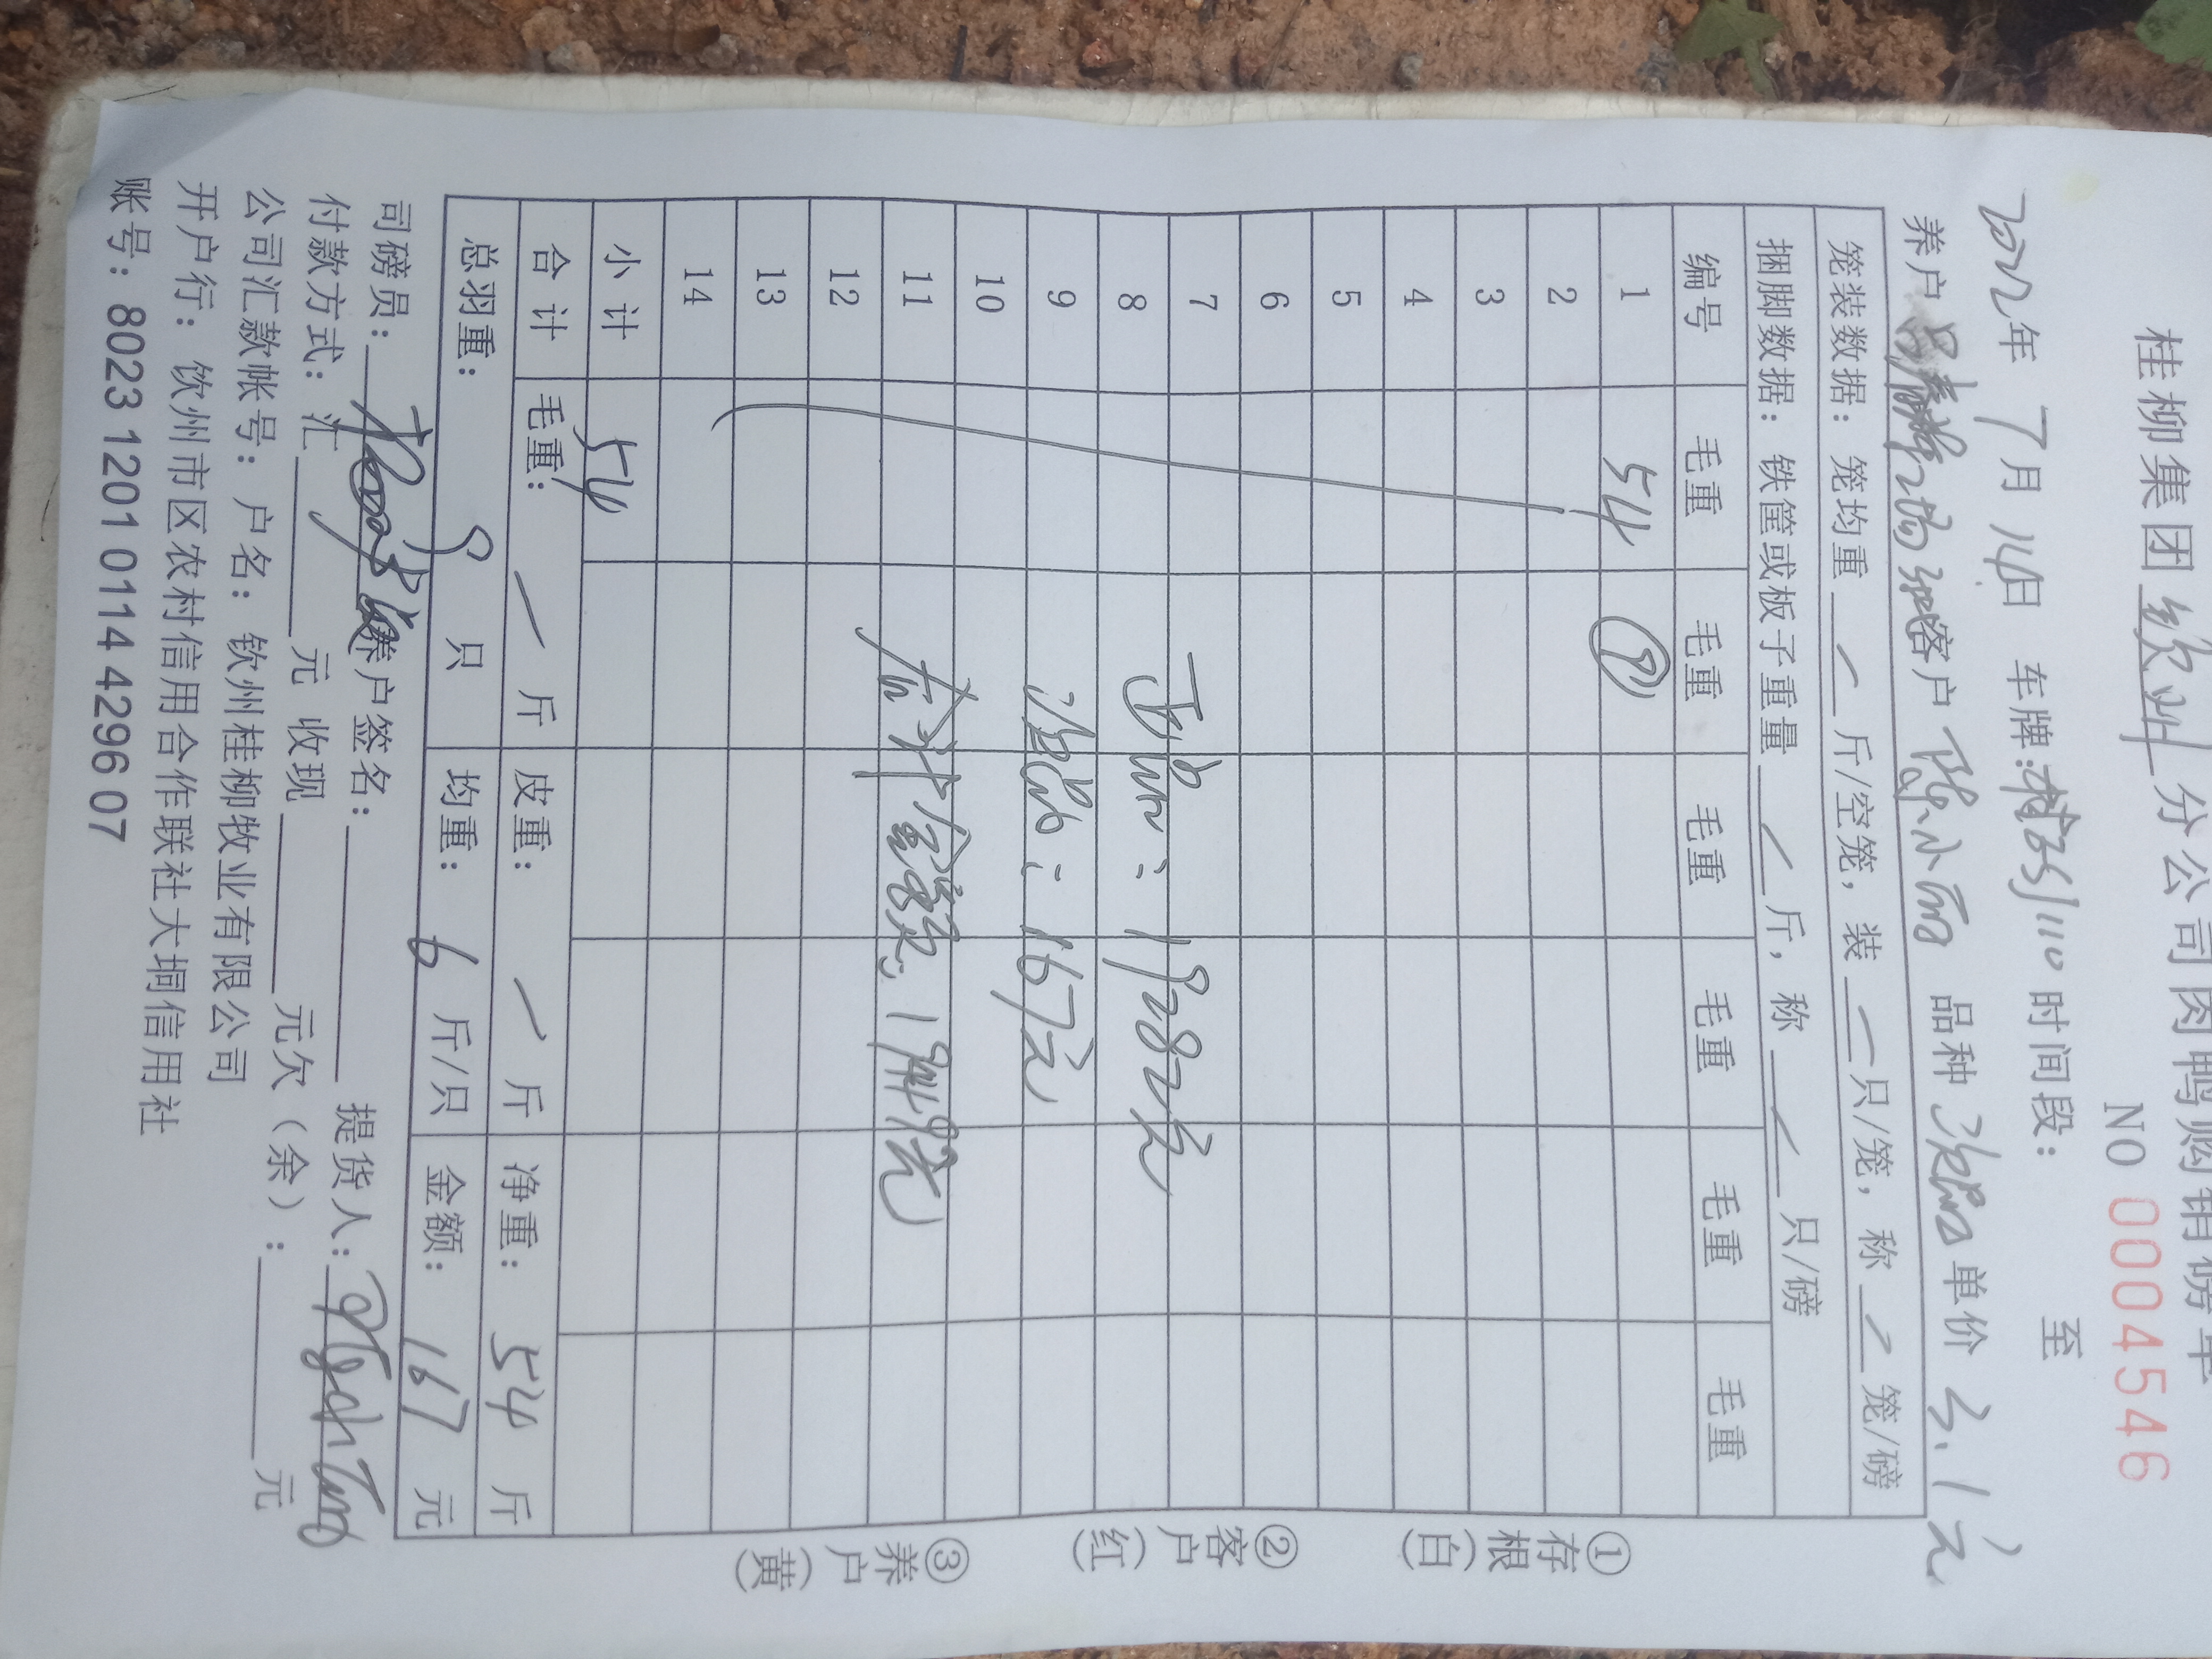 桂柳集团 钦州 分公司肉鸭购销磅单
NO 0004546
2022年 7月 14日 车牌: 时间段: 至
养户 客户 陈小丽 品种 次鸭 单价 3.1元
笼装数据: 笼均重 / 斤/空笼, 装 / 只/笼, 称 / 笼/磅
捆脚数据: 铁筐或板子重量 / 斤, 称 / 只/磅
编号 毛重 毛重 毛重 毛重 毛重 毛重
1 54 ⑨
2
3
4
5
6
7
8 正鸭: 19282元
9 次鸭: 167元
10
11 合计金额: 19449元
12
13
14
小计 54
合计 毛重: / 斤 皮重: / 斤 净重: 54 斤
总羽重: 9 只 均重: 6 斤/只 金额: 167 元
司磅员: 养户签名: 提货人:
付款方式: 汇 元 收现 元欠(余): 元
公司汇款帐号: 户名: 钦州桂柳牧业有限公司
开户行: 钦州市区农村信用合作联社大垌信用社
账号: 8023 1201 0114 4296 07
①存根(白)
②客户(红)
③养户(黄)